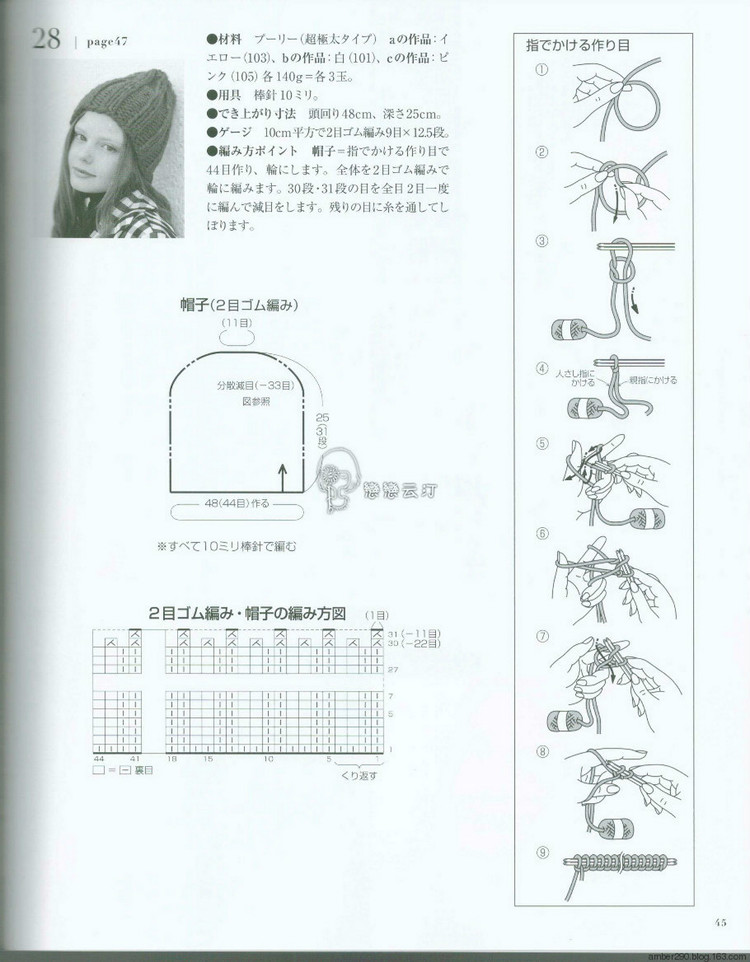 28 | page47
●材料　ブーリー（超極太タイプ）　aの作品：イ
エロー（103）、bの作品：白（101）、cの作品：ピ
ンク（105）各140g＝各3玉。
●用具　棒針10ミリ。
●でき上がり寸法　頭回り48cm、深さ25cm。
●ゲージ　10cm平方で2目ゴム編み9目×12.5段。
●編み方ポイント　帽子＝指でかける作り目で
44目作り、輪にします。全体を2目ゴム編みで
輪に編みます。30段・31段の目を全目2目一度
に編んで減目をします。残りの目に糸を通してし
ぼります。
帽子（2目ゴム編み）
（11目）
分散減目（－33目）
図参照
25
（31段）
48（44目）作る
戀戀云汀
※すべて10ミリ棒針で編む
2目ゴム編み・帽子の編み方図
（1目）
31（－11目）
30（－22目）
27
7
5
1
44 41 18 15 10 5 1
□＝⊟裏目
くり返す
指でかける作り目
①
②
③
④
人さし指に
かける
親指にかける
⑤
⑥
⑦
⑧
⑨
45
amber290.blog.163.com